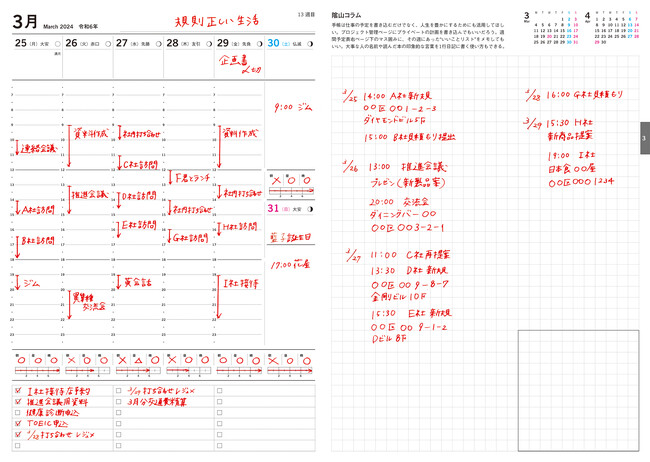 3月 March 2024 令和6年
規則正しい生活
13週目
25 (月) 大安
26 (火) 赤口
27 (水) 先勝
28 (木) 友引
29 (金) 先負
30 (土) 仏滅
企画書
〆切
連絡会議
A社訪問
B社訪問
ジム
資料作成
推進会議
異業種
交流会
社内打ち合わせ
C社訪問
D社訪問
E社訪問
英会話
F君とランチ
社内打ち合わせ
G社訪問
資料作成
社内打ち合わせ
H社訪問
I社接待
9:00 ジム
31 (日) 大安
藍子誕生日
17:00 花屋
I社接待店予約
推進会議用資料
健康診断申込
TOEIC申込
3/28打ち合わせレジメ
3月分交通費精算
陰山コラム
手帳は仕事の予定を書き込むだけでなく、人生を豊かにするためにも活用してほし
い。プロジェクト管理ページにプライベートの計画を書き込んでもいいだろう。週
間予定表右ページ下のマス読みに、その週にあった“いいことリスト”をメモしても
いい。大事な人の名前や読んだ本の印象的な言葉を1行日記に書く使い方もできる。
3
4
3/25 14:00 A社新規
〇〇区 〇〇1-2-3
ダイヤモンドビル5F
15:00 B社見積もり提出
3/26 13:00 推進会議
プレゼン(新製品案)
20:00 交流会
ダイニングバー〇〇
〇〇区 〇〇3-2-1
3/27 11:00 C社再提案
13:30 D社新規
〇〇区 〇〇9-8-7
金剛ビル10F
15:30 E社新規
〇〇区 〇〇9-1-2
Dビル8F
3/28 16:00 G社見積もり
3/29 15:30 H社
新商品提案
19:00 I社
日本食〇〇屋
〇〇区〇〇1234
3